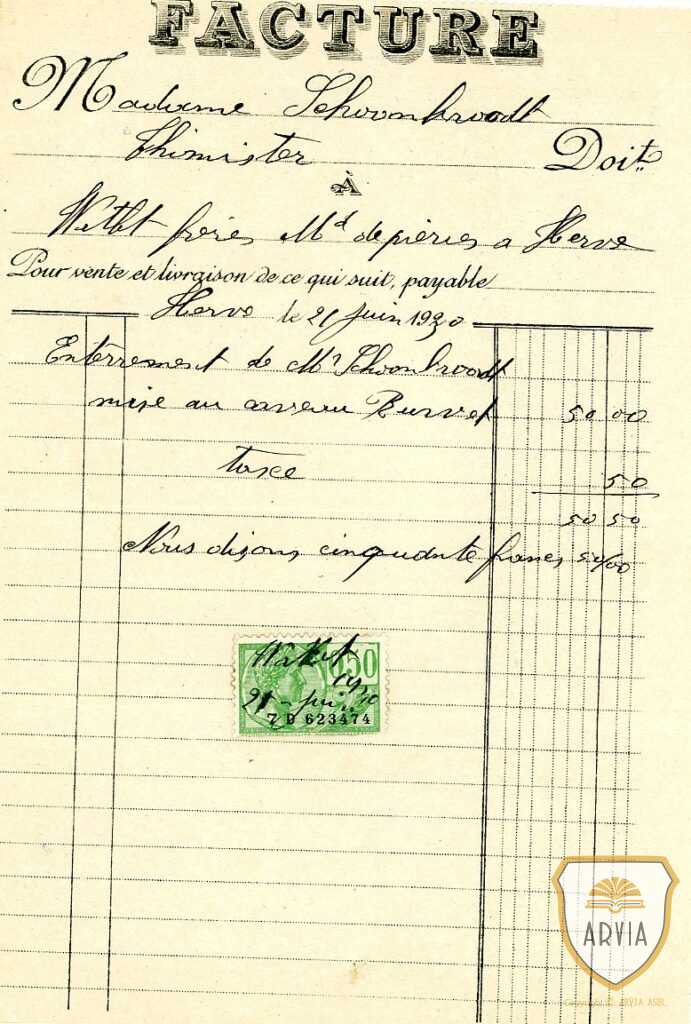 FACTURE
Madame Schoonbroodt
Thimister Doit
À
frères Md de pierres a Herve
Pour vente et livraison de ce qui suit, payable
Herve le 21 juin 1930
Enterrement de Mr Schoonbroodt
mise au caveau 50 00
taxe 50
50 50
Nous disons cinquante francs 50/00
0,50
21 - jui
7 D 623474
ARVIA
Copyright © ARVIA ASBL